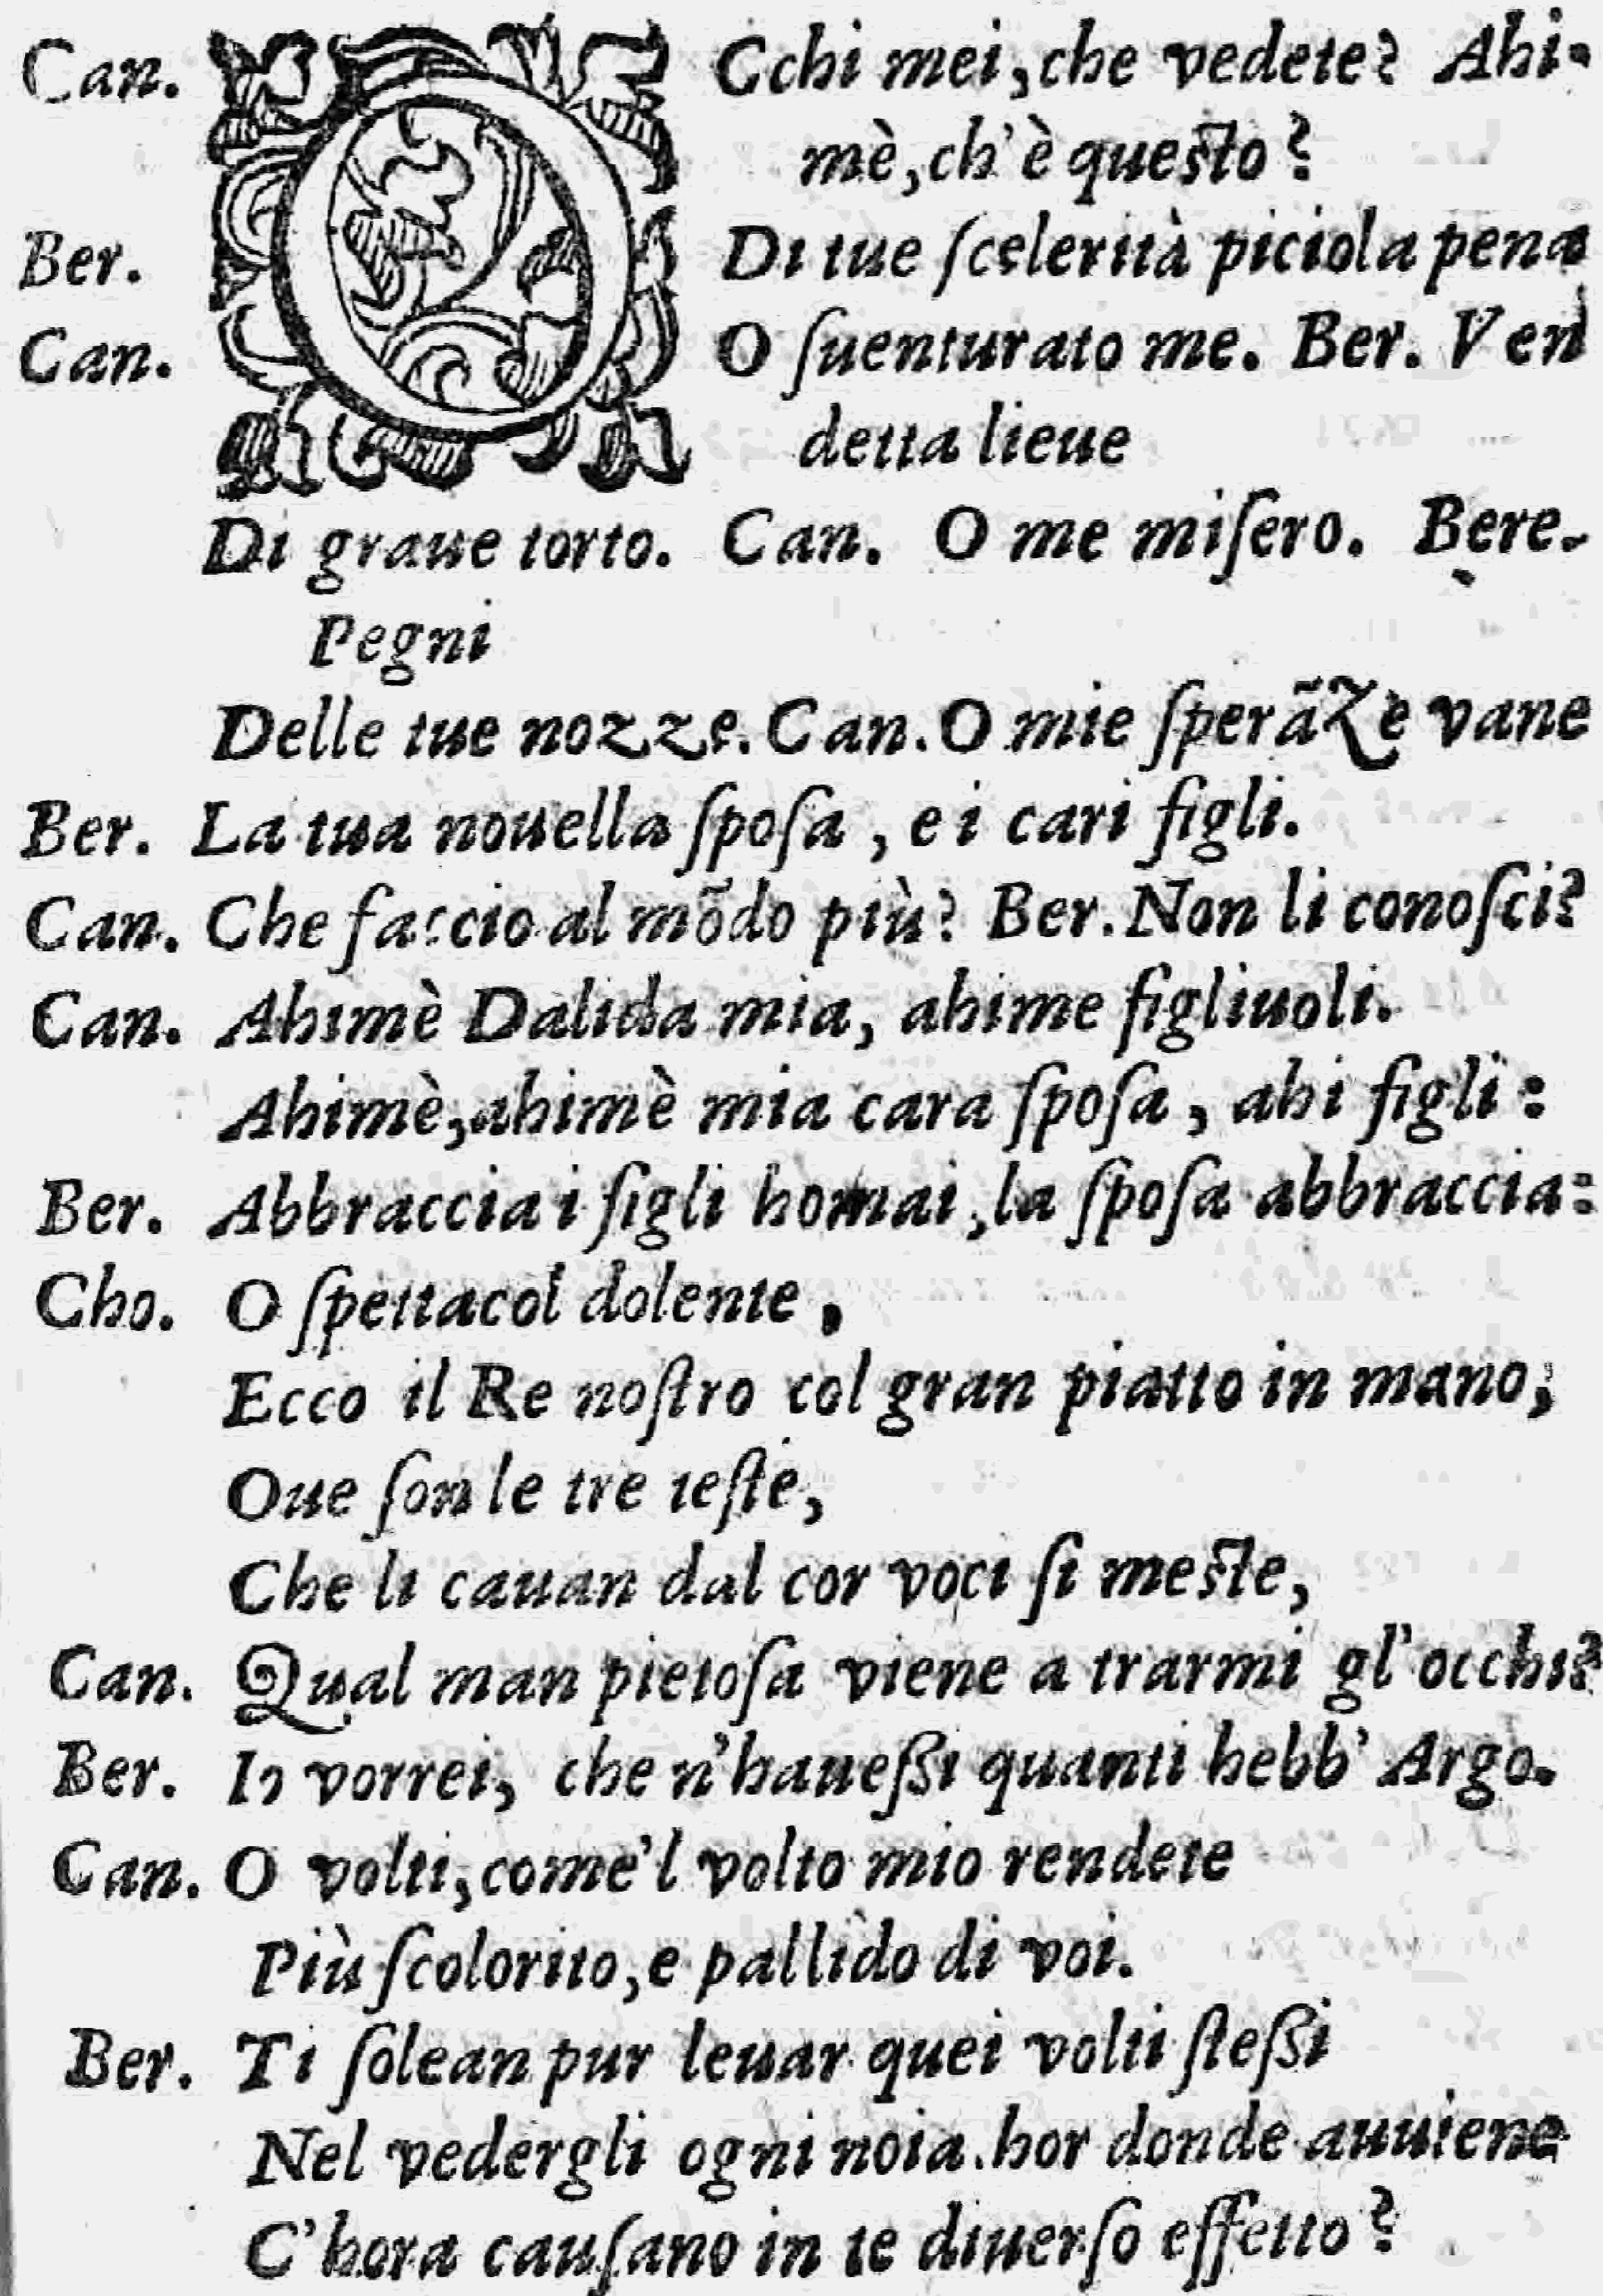 Can. OCchi mei, che vedete? Ahi-
mè, ch'è questo?
Ber. Di tue ſcelerità piciola pena
Can. O ſuenturato me. Ber. Ven
detta lieue
Di graue torto. Can. O me miſero. Bere.
Pegni
Delle tue nozze. Can. O mie ſperãze vane
Ber. La tua nouella ſpoſa, e i cari figli.
Can. Che faccio al mõdo più? Ber. Non li conoſci?
Can. Ahimè Dalida mia, ahime figliuoli.
Ahimè, ahimè mia cara ſpoſa, ahi figli:
Ber. Abbraccia i figli homai, la ſpoſa abbraccia:
Cho. O ſpettacol dolente,
Ecco il Re noſtro col gran piatto in mano;
Oue ſon le tre teſte,
Che li cauan dal cor voci ſi meste,
Can. Qual man pietoſa viene a trarmi gl'occhi?
Ber. Io vorrei, che n'haueſſi quanti hebb' Argo.
Can. O volti, come'l volto mio rendete
Più ſcolorito, e pallido di voi.
Ber. Ti ſolean pur leuar quei volti ſteſſi
Nel vedergli ogni noia. hor donde auuiene
C'hora cauſano in te diuerſo effetto?